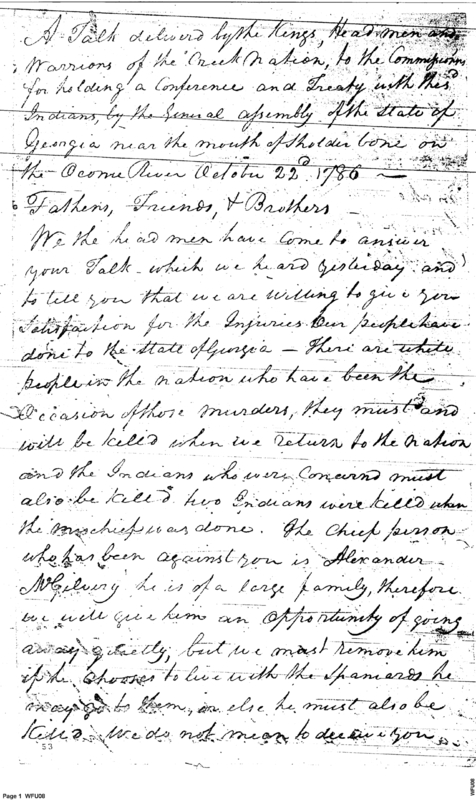 A Talk deliverd by the Kings, Head men and
Warriors of the Creek Nation, to the Commissioners
for holding a Conference and Treaty with the sd
Indians, by the General assembly of the state of
Georgia near the mouth of sholder bone on
the Oconie River October 22d 1786 —
Fathers, Friends, & Brothers —
We the head men have come to answer
your Talk which we heard yesterday and
to tell you that we are willing to give you
Satisfaction for the Injuries Our people have
done to the state of Georgia — There are white
people in the nation who have been the
Occasion of those murders, they must and
will be killd when we return to the nation
and the Indians who were Concernd must
also be killd two Indians were killd when
the mischief was done. The Chief person
who has been against you is Alexander
McGilvery he is of a large family, therefore
we will give him an opportunity of going
away quietly, but we must remove him
if he chooses to live with the Spaniards he
may go to them, or else he must also be
killd. We do not mean to deceive you
53
Page 1 WFU08
WFU08